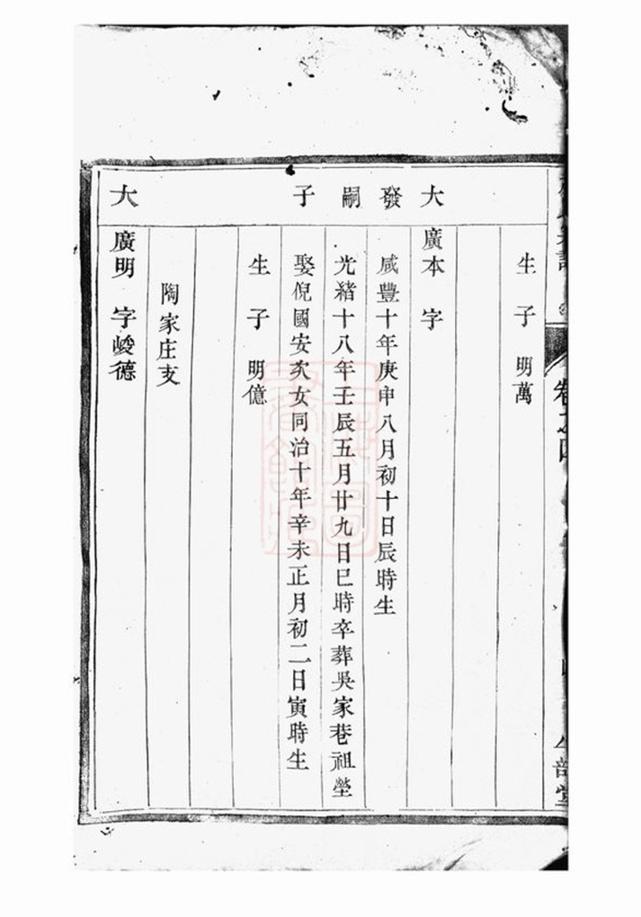 卷之四
生子 明萬
大 廣本 字
發 咸豐十年庚申八月初十日辰時生
嗣 光緒十八年壬辰五月廿九日巳時卒葬吳家巷祖塋
子 娶倪國安次女同治十年辛未正月初二日寅時生
生子 明億
陶家庄支
大 廣明 字峻德